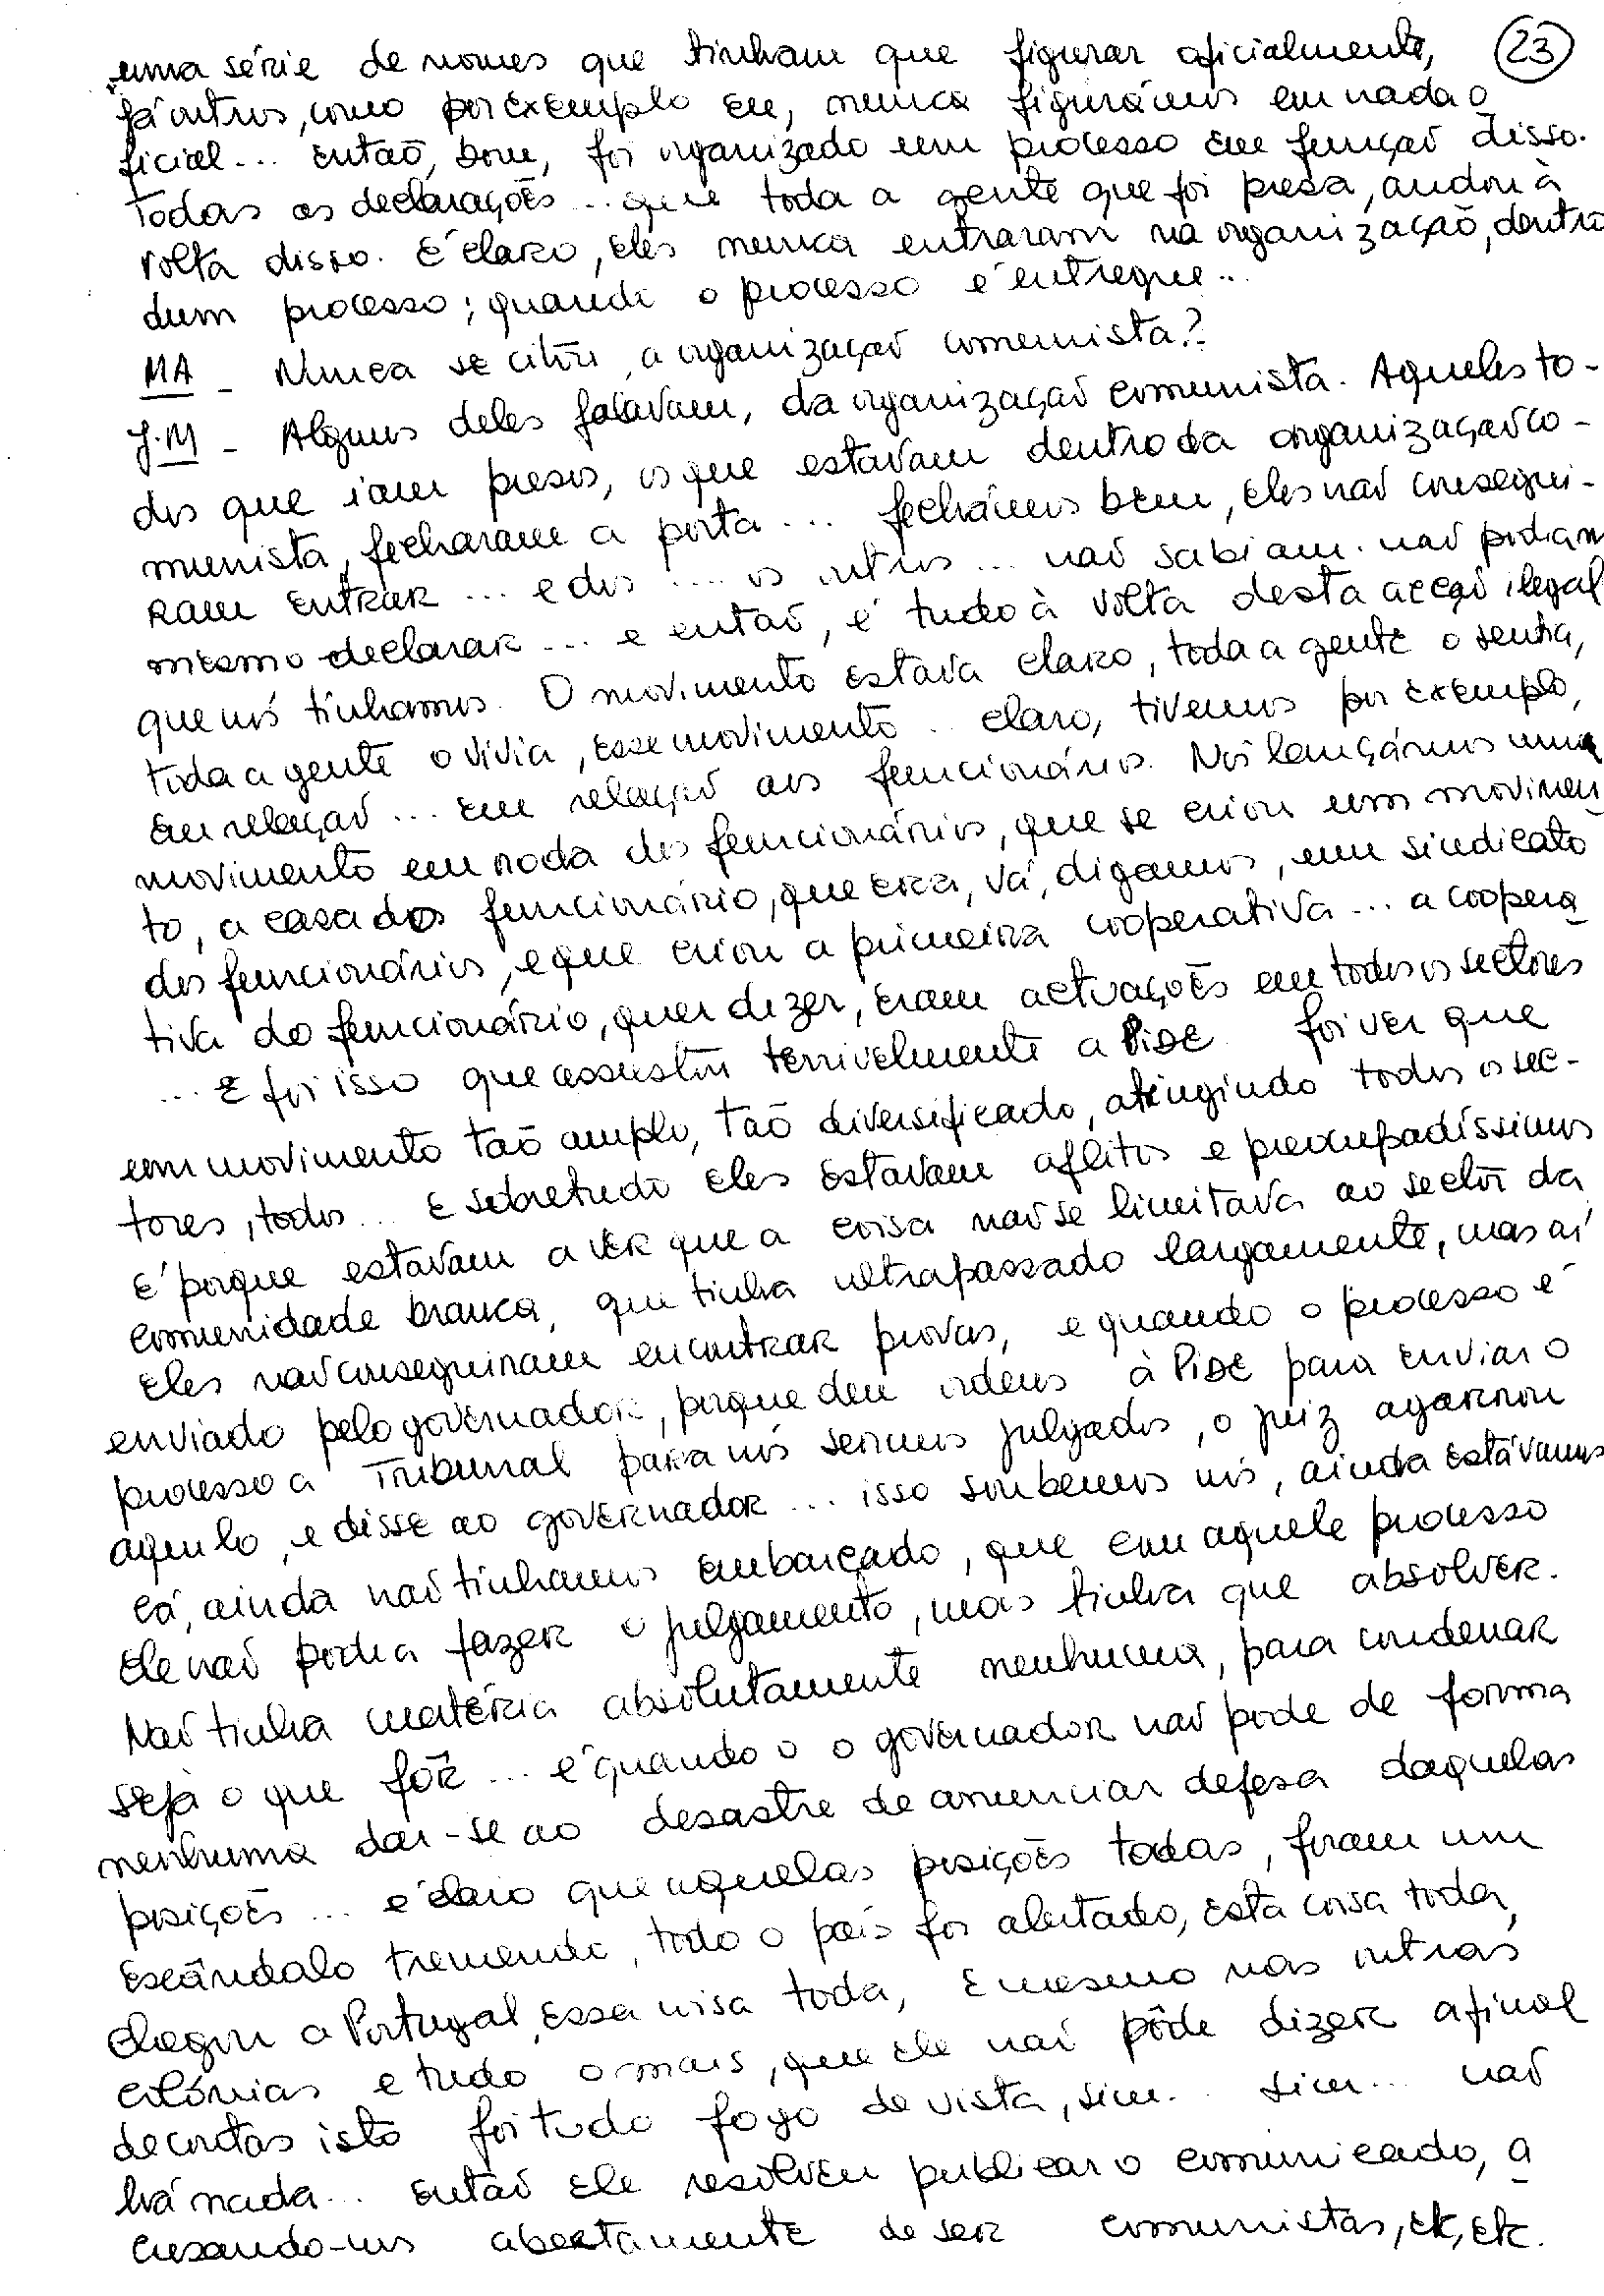 uma série de nomes que tinham que figurar oficialmente, (23)
já outros, como por exemplo eu, nunca figurámos em nada o
ficial... então, bom, foi organizado um processo em função disso.
Todas as declarações... que toda a gente que foi presa, andou à
volta disso. É claro, eles nunca entraram na organização, dentro
dum processo; quando o processo é entregue...
MA - Nunca se citou, a organização comunista?
J.M - Alguns deles falavam, da organização comunista. Aqueles to-
dos que iam presos, os que estavam dentro da organização co-
munista, fecharam a porta... fechámos bem, eles não consegui-
ram entrar... e dos.... os outros... não sabiam. não podiam
mesmo declarar... e então, é tudo à volta desta acção ilegal
que nós tínhamos. O movimento estava claro, toda a gente o sentia,
toda a gente o vivia, esse movimento.. claro, tivemos por exemplo,
em relação... em relação aos funcionários. Nós lançámos um
movimento em roda dos funcionários, que se criou um movimen
to, a casa dos funcionário, que era, vá, digamos, um sindicato
dos funcionários, e que criou a primeira cooperativa... a coopera
tiva do funcionário, quer dizer, eram actuações em todos os sectores
... E foi isso que assustou terrivelmente a PIDE. foi ver que
um movimento tão amplo, tão diversificado, atingindo todos os sec-
tores, todos... E sobretudo eles estavam aflitos e preocupadíssimos
E' porque estavam a ver que a coisa não se limitava ao sector da
comunidade branca, que tinha ultrapassado largamente, mas aí
eles não conseguiram encontrar provas, e quando o processo é
enviado pelo governador, porque deu ordens à PIDE para enviar o
processo a Tribunal para nós sermos julgados, o juiz agarrou
aquilo, e disse ao governador... isso soubemos nós, ainda estávamos
lá, ainda não tínhamos embarcado, que em aquele processo
ele não podia fazer o julgamento, mas tinha que absolver.
Não tinha matéria absolutamente nenhuma, para condenar
seja o que fôr... e' quando o o governador não pode de forma
nenhuma dar-se ao desastre de anunciar defesa daquelas
posições... e' claro que aquelas posições todas, foram um
escândalo tremendo, todo o país foi alertado, esta coisa toda,
chegou a Portugal, essa coisa toda, e mesmo nas outras
colónias e tudo o mais, que ele não pôde dizer afinal
de contas isto foi tudo fogo de vista, sim.. sim... não
há nada... então ele resolveu publicar o comunicado, a
cusando-nos abertamente de ser comunistas, etc, etc.